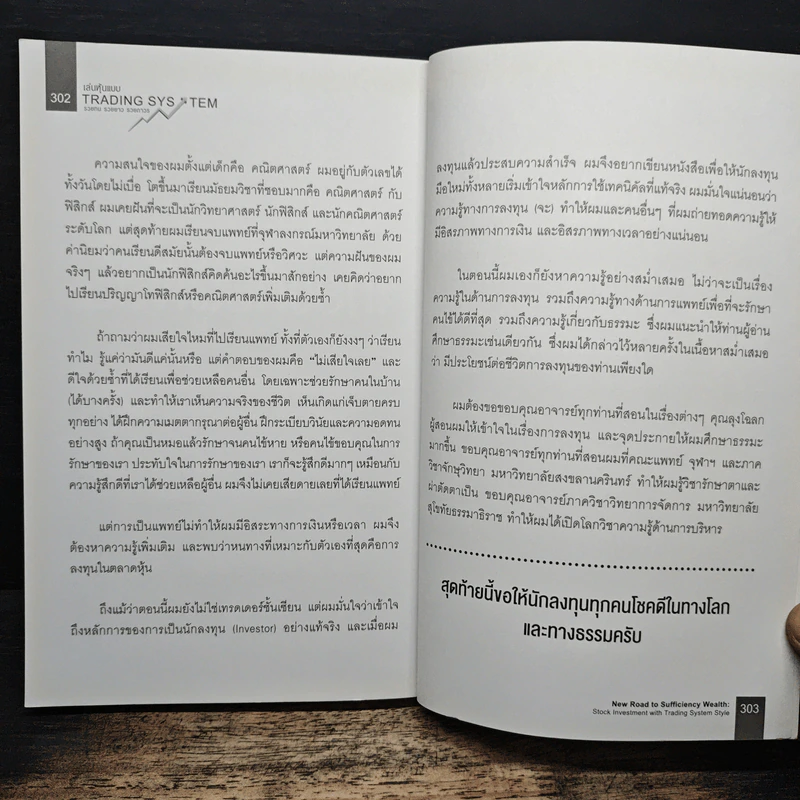 302
เล่นหุ้นแบบ
TRADING SYSTEM
รวยเงิน รวยยาว รวยถาวร
ความสนใจของผมตั้งแต่เด็กคือ คณิตศาสตร์ ผมอยู่กับตัวเลขได้
ทั้งวันโดยไม่เบื่อ โตขึ้นมาเรียนมัธยมวิชาที่ชอบมากคือ คณิตศาสตร์ กับ
ฟิสิกส์ ผมเคยฝันที่จะเป็นนักวิทยาศาสตร์ นักฟิสิกส์ และนักคณิตศาสตร์
ระดับโลก แต่สุดท้ายผมเรียนจบแพทย์ที่จุฬาลงกรณ์มหาวิทยาลัย ด้วย
ค่านิยมว่าคนเรียนดีสมัยนั้นต้องจบแพทย์หรือวิศวะ แต่ความฝันของผม
จริงๆ แล้วอยากเป็นนักฟิสิกส์คิดค้นอะไรขึ้นมาสักอย่าง เคยคิดว่าอยาก
ไปเรียนปริญญาโทฟิสิกส์หรือคณิตศาสตร์เพิ่มเติมด้วยซ้ำ
ถ้าถามว่าผมเสียใจไหมที่ไปเรียนแพทย์ ทั้งที่ตัวเองก็ยังงงๆ ว่าเรียน
ทำไม รู้แค่ว่ามันดีแค่นั้นหรือ แต่คำตอบของผมคือ “ไม่เสียใจเลย” และ
ดีใจด้วยซ้ำที่ได้เรียนเพื่อช่วยเหลือคนอื่น โดยเฉพาะช่วยรักษาคนในบ้าน
(ได้บางครั้ง) และทำให้เราเห็นความจริงของชีวิต เห็นเกิดแก่เจ็บตายครบ
ทุกอย่าง ได้ฝึกความเมตตากรุณาต่อผู้อื่น ฝึกระเบียบวินัยและความอดทน
อย่างสูง ถ้าคุณเป็นหมอแล้วรักษาจนคนไข้หาย หรือคนไข้ขอบคุณในการ
รักษาของเรา ประทับใจในการรักษาของเรา เราก็จะรู้สึกดีมากๆ เหมือนกับ
ความรู้สึกดีที่เราได้ช่วยเหลือผู้อื่น ผมจึงไม่เคยเสียดายเลยที่ได้เรียนแพทย์
แต่การเป็นแพทย์ไม่ทำให้ผมมีอิสระทางการเงินหรือเวลา ผมจึง
ต้องหาความรู้เพิ่มเติม และพบว่าหนทางที่เหมาะกับตัวเองที่สุดคือการ
ลงทุนในตลาดหุ้น
ถึงแม้ว่าตอนนี้ผมยังไม่ใช่เทรดเดอร์ชั้นเซียน แต่ผมมั่นใจว่าเข้าใจ
ถึงหลักการของการเป็นนักลงทุน (Investor) อย่างแท้จริง และเมื่อผม
ลงทุนแล้วประสบความสำเร็จ ผมจึงอยากเขียนหนังสือเพื่อให้นักลงทุน
มือใหม่ทั้งหลายเริ่มเข้าใจหลักการใช้เทคนิคัลที่แท้จริง ผมมั่นใจแน่นอนว่า
ความรู้ทางการลงทุน (จะ) ทำให้ผมและคนอื่นๆ ที่ผมถ่ายทอดความรู้ให้
มีอิสรภาพทางการเงิน และอิสรภาพทางเวลาอย่างแน่นอน
ในตอนนี้ผมเองก็ยังหาความรู้อย่างสม่ำเสมอ ไม่ว่าจะเป็นเรื่อง
ความรู้ในด้านการลงทุน รวมถึงความรู้ทางด้านการแพทย์เพื่อที่จะรักษา
คนไข้ได้ดีที่สุด รวมถึงความรู้เกี่ยวกับธรรมะ ซึ่งผมแนะนำให้ท่านผู้อ่าน
ศึกษาธรรมะเช่นเดียวกัน ซึ่งผมได้กล่าวไว้หลายครั้งในเนื้อหาสม่ำเสมอ
ว่า มีประโยชน์ต่อชีวิตการลงทุนของท่านเพียงใด
ผมต้องขอขอบคุณอาจารย์ทุกท่านที่สอนในเรื่องต่างๆ คุณลุงโฉลก
ผู้สอนผมให้เข้าใจในเรื่องการลงทุน และจุดประกายให้ผมศึกษาธรรมะ
มากขึ้น ขอบคุณอาจารย์ทุกท่านที่สอนผมที่คณะแพทย์ จุฬาฯ และภาค
วิชาจักษุวิทยา มหาวิทยาลัยสงขลานครินทร์ ทำให้ผมรู้วิชารักษาตาและ
ผ่าตัดตาเป็น ขอบคุณอาจารย์ภาควิชาวิทยาการจัดการ มหาวิทยาลัย
สุโขทัยธรรมาธิราช ทำให้ผมได้เปิดโลกวิชาความรู้ด้านการบริหาร
สุดท้ายนี้ขอให้นักลงทุนทุกคนโชคดีในทางโลก
และทางธรรมครับ
New Road to Sufficiency Wealth:
Stock Investment with Trading System Style
303